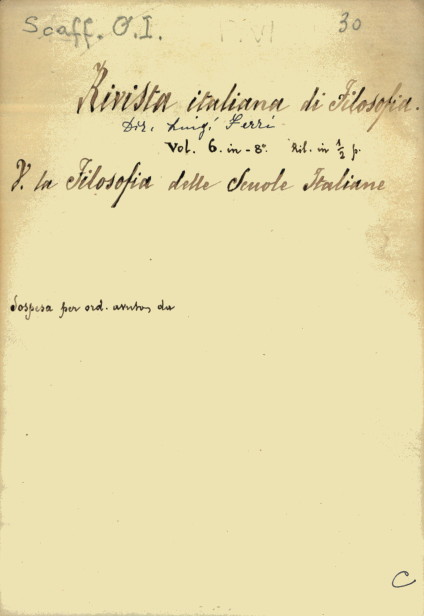 Scaff. O. I. T. VI 30
Rivista italiana di Filosofia.
Dir. Luigi Ferri
Vol. 6. in - 8°. Ril. in 1/2 p.
V. la Filosofia delle Scuole Italiane
Sospesa per ord. avuto, da
C